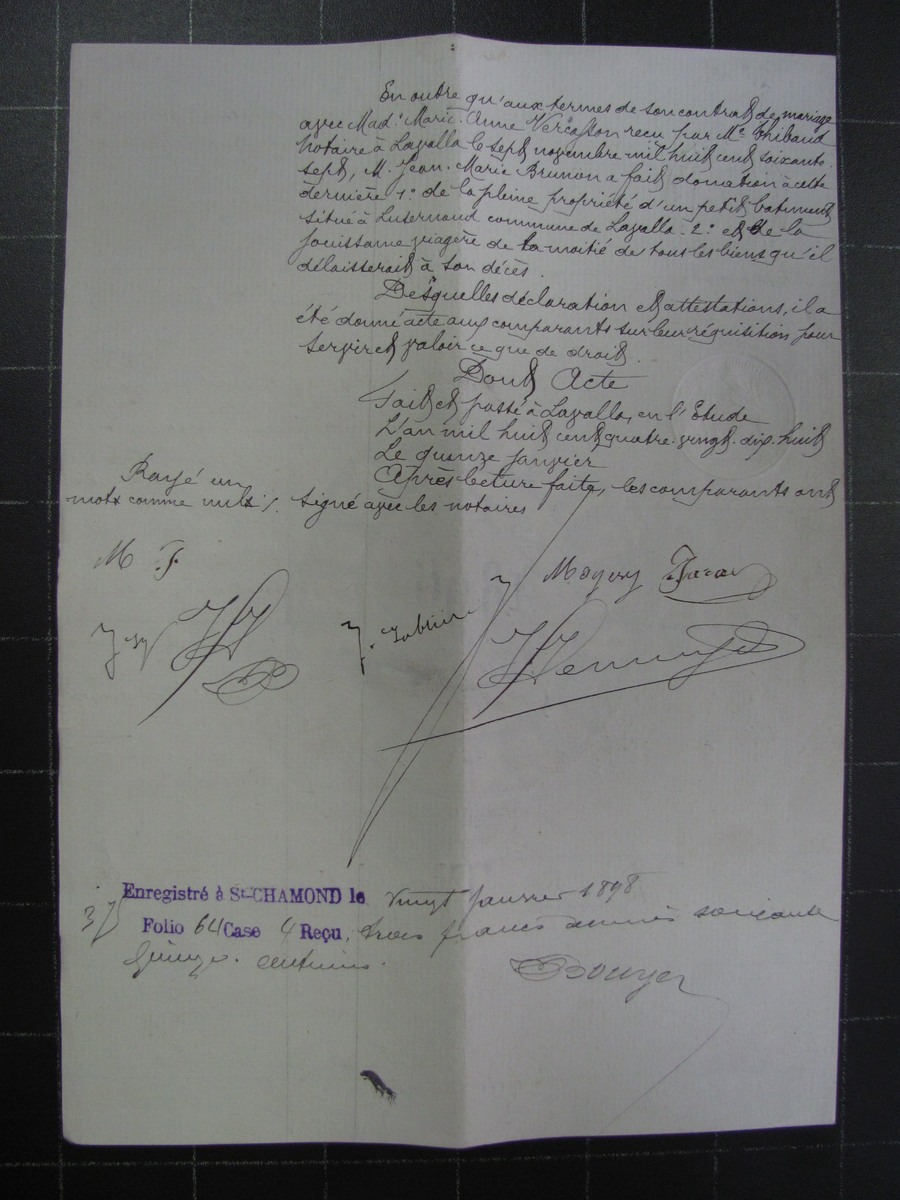 En outre qu'aux termes de son contrat de mariage
avec Mad.e Marie-Anne Vercasson recu par Me Thibaud
notaire à Lavalla le sept novembre mil huit cent soixante-
sept, M. Jean-Marie Brunon a fait donation à cette
dernière 1° de la pleine propriété d'un petit batiment
situé à Luzernaud commune de Lavalla. 2° et de la
jouissance viagère de la moitié de tous les biens qu'il
délaisserait à son décès.
Desquelles déclaration et attestations, il a
été donné acte aux comparants sur leur réquisition pour
servir et valoir ce que de droit.
Dont Acte
Fait et passé à Lavalla, en l'Etude
L'an mil huit cent quatre-vingt-dix-huit
Le quinze janvier
Après lecture faite, les comparants ont
signé avec les notaires
Rayé un
mot comme nul ./.
M F
Enregistré à St-CHAMOND le vingt janvier 1898
Folio 64 Case 4 Reçu, trois francs décimes soixante
Quinze centimes.
3 75
Bouyer